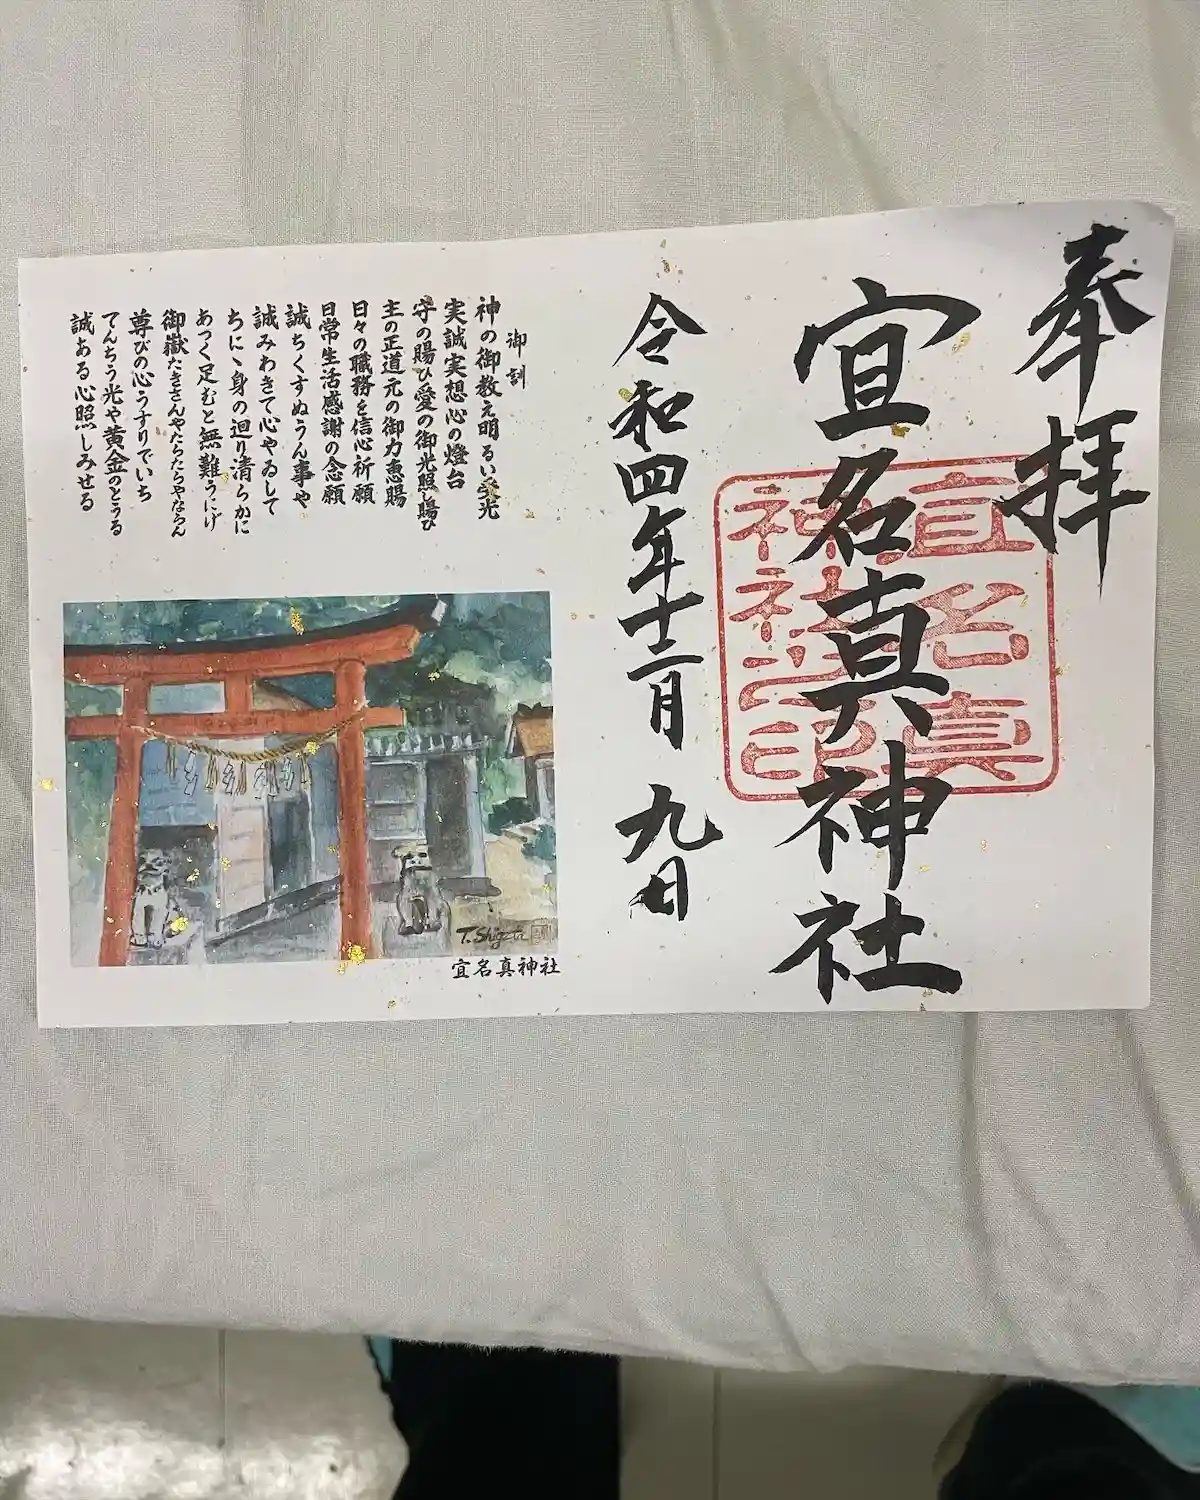 奉拝
宜名真神社
宜名真
神社之印
令和四年十二月 九日
御訓
神の御教え明るい栄光
実誠実想心の燈台
守の賜ひ愛の御光照し賜ひ
主の正道元の御力恵賜
日々の職務を信心祈願
日常生活感謝の念願
誠ちくすぬうん事や
誠みわきて心やゐして
ちにゝ身の廻り清らかに
あつく足むと無難うにげ
御嶽たきさんやたらたらやならん
尊びの心うすりでいち
てんちう光や黄金のとうる
誠ある心照しみせる
T. Shigeta
宜名真神社